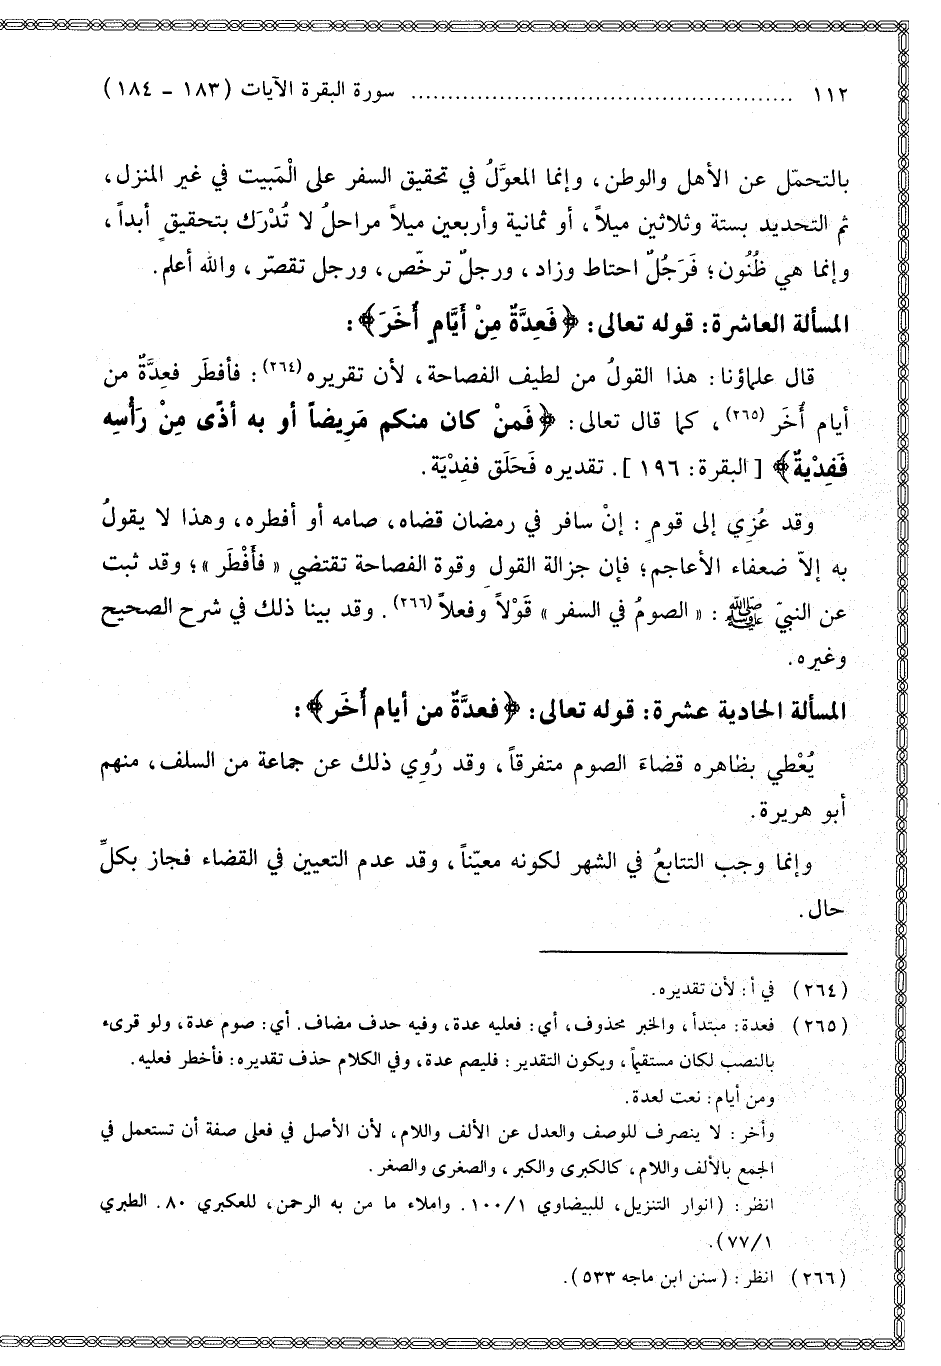 ١١٢ ..................................................... سورة البقرة الآيات (١٨٣ - ١٨٤)
بالتحمّل عن الأهل والوطن، وإنما المعوَّلُ في تحقيق السفر على الْمَبيت في غير المنزل،
ثم التحديد بستة وثلاثين ميلاً، أو ثمانية وأربعين ميلاً مراحلُ لا تُدْرَك بتحقيقٍ أبداً،
وإنما هي ظُنُون؛ فَرَجُلٌ احتاط وزاد، ورجلٌ ترخّص، ورجل تقصّر، والله أعلم.
المسألة العاشرة: قوله تعالى: ﴿فَعِدَّةٌ مِنْ أَيَّامٍ أُخَرَ﴾:
قال علماؤنا: هذا القولُ من لطيف الفصاحة، لأن تقريره(٢٦٤): فأفطَر فعِدَّةٌ من
أيام أُخَر(٢٦٥)، كما قال تعالى: ﴿فَمنْ كان منكم مَرِيضاً أو به أذًى مِنْ رَأْسِه
فَفِدْيةٌ﴾ [البقرة: ١٩٦]. تقديره فَحَلَق ففِدْيَة.
وقد عُزِي إلى قومٍ: إنْ سافر في رمضان قضاه، صامه أو أفطره، وهذا لا يقولُ
به إلاّ ضعفاء الأعاجم؛ فإن جزالة القولِ وقوة الفصاحة تقتضي «فأَفْطَر»؛ وقد ثبت
عن النبيّ ﷺ: «الصومُ في السفر» قَوْلاً وفعلاً(٢٦٦). وقد بينا ذلك في شرح الصحيح
وغيره.
المسألة الحادية عشرة: قوله تعالى: ﴿فعدَّةٌ من أيام أُخَر﴾:
يُعْطي بظاهره قضاءَ الصوم متفرقاً، وقد رُوِي ذلك عن جماعة من السلف، منهم
أبو هريرة.
وإنما وجب التتابعُ في الشهر لكونه معيّناً، وقد عدم التعيين في القضاء فجاز بكلِّ
حال.
(٢٦٤) في أ: لأن تقديره.
(٢٦٥) فعدة: مبتدأ، والخبر محذوف، أي: فعليه عدة، وفيه حدف مضاف. أي: صوم عدة، ولو قرىء
بالنصب لكان مستقيماً، ويكون التقدير: فليصم عدة، وفي الكلام حذف تقديره: فأخطر فعليه.
ومن أيام: نعت لعدة.
وأخر: لا ينصرف للوصف والعدل عن الألف واللام، لأن الأصل في فعلى صفة أن تستعمل في
الجمع بالألف واللام، كالكبرى والكبر، والصغرى والصغر.
انظر: (انوار التنزيل، للبيضاوي ١٠٠/١. واملاء ما من به الرحمن، للعكبري ٨٠. الطبري
٧٧/١).
(٢٦٦) انظر: (سنن ابن ماجه ٥٣٣).